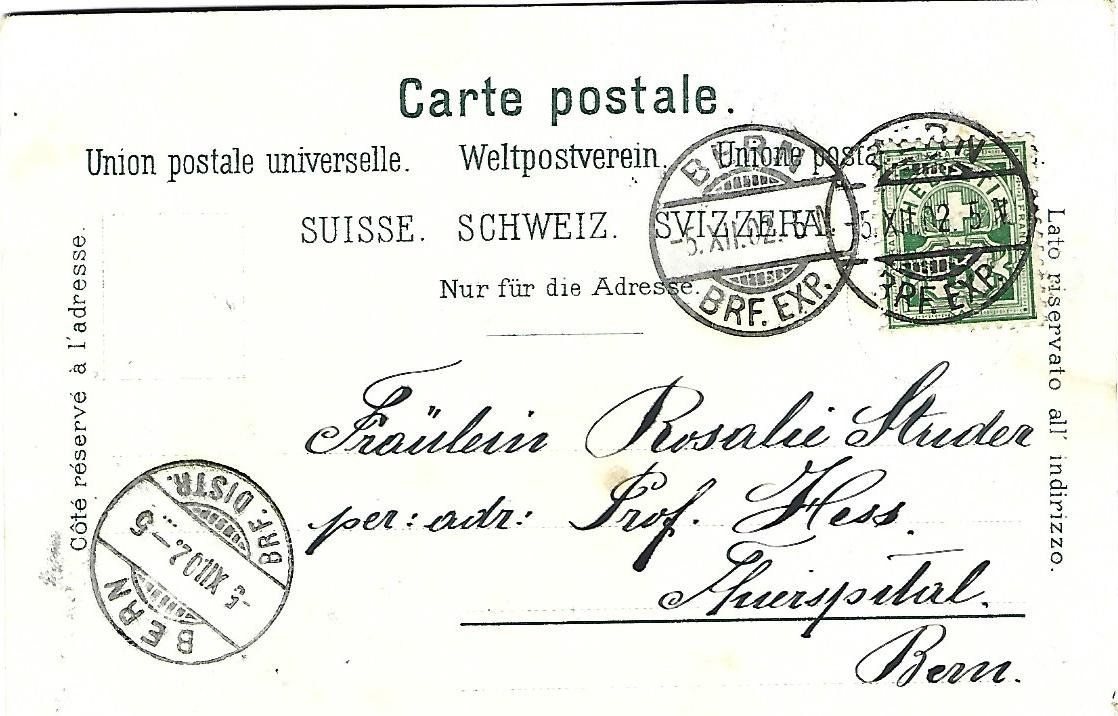 Carte postale.
Union postale universelle. Weltpostverein. Unione posta
SUISSE. SCHWEIZ. SVIZZERA.
Nur für die Adresse.
Côté réservé à l'adresse.
Lato riservato all' indirizzo.
BERN
-5.XII.02. 5 N
BRF. EXP.
BERN
-5.XII.02. 5 N
BRF. EXP.
HELVETIA
Fräulein Rosalie Studer
per: adr: Prof. Hess.
Thierspital.
Bern.
BRF. DISTR.
-5 XII.02.--6
BERN